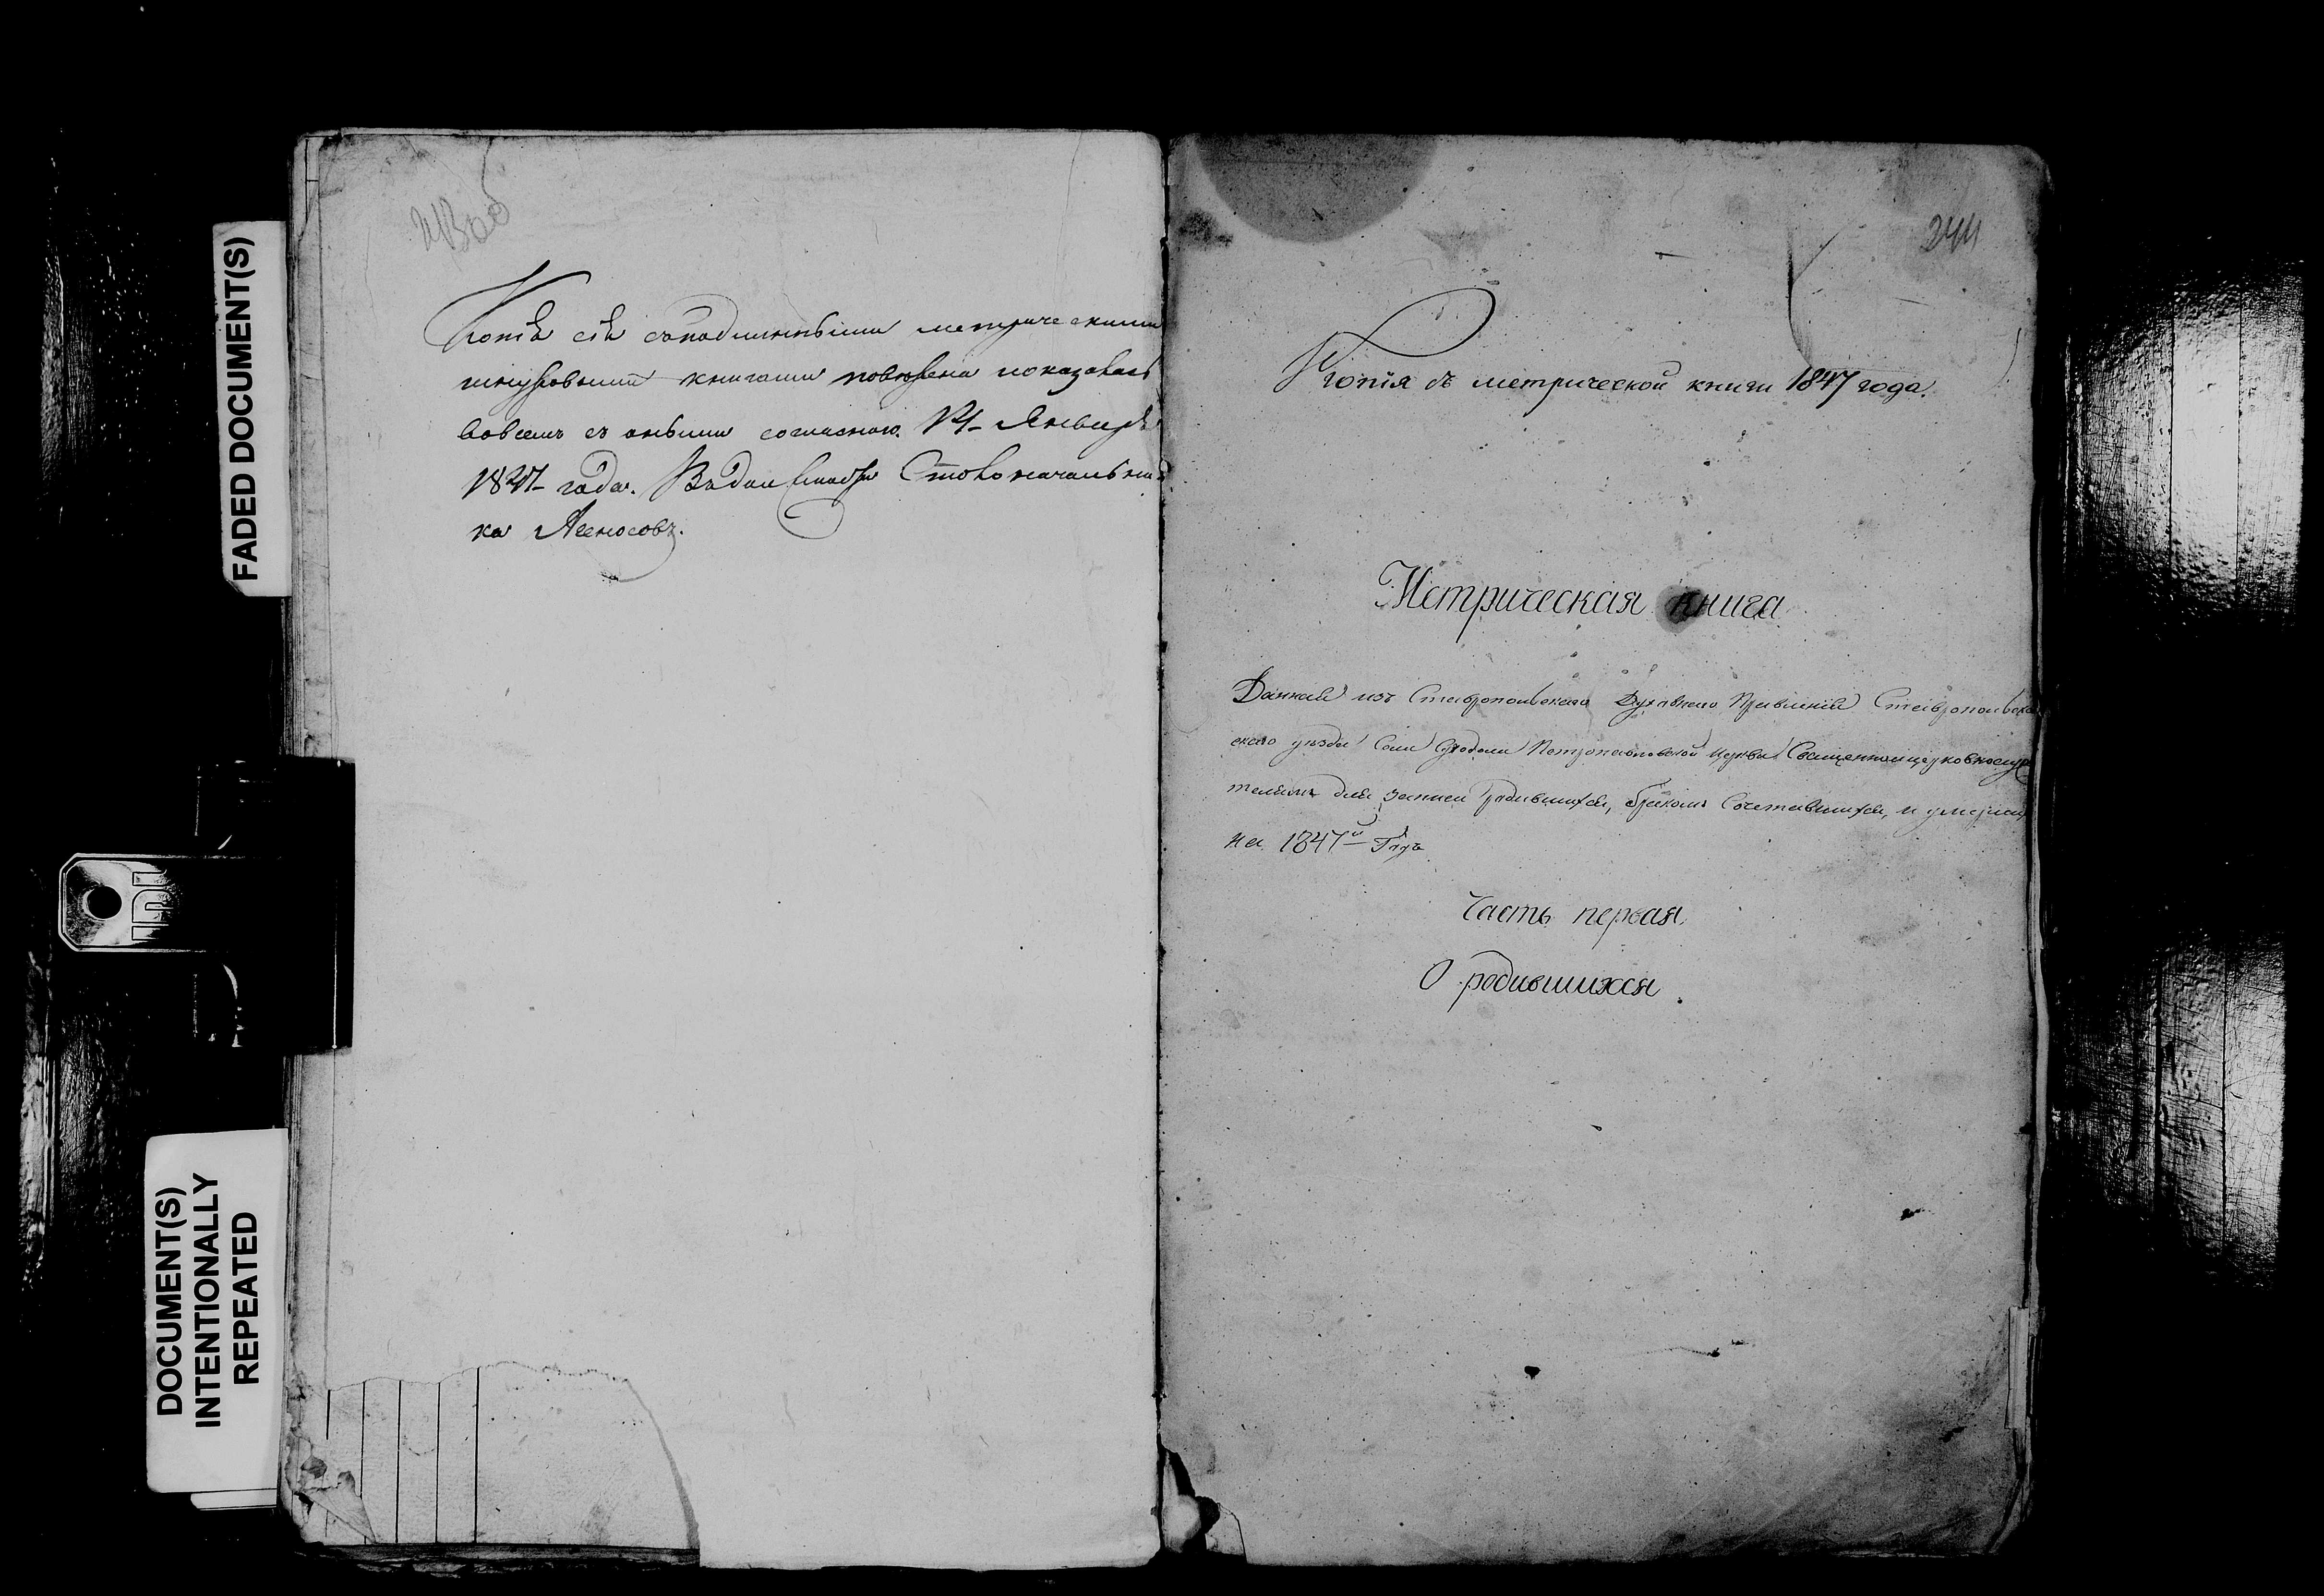 FADED DOCUMENT(S)
DOCUMENT(S)
INTENTIONALLY
REPEATED
Копія сія съ подлинными метрическими
шнуровыми книгами повѣрена и оказалась
во всемъ съ оными согласною. Января
года. Столоначальни
ка
244
Копія съ метрической книги 1847 года.
Метрическая книга
Данная изъ Ставропольскаго Духовнаго Правленія Ставропольска
скаго уѣзда Села Петропавловской Церкви Священноцерковнослужи
телямъ для записи родившихся, бракомъ сочетавшихся, и умерших
на 1847й Годъ
Часть первая
О родившихся.